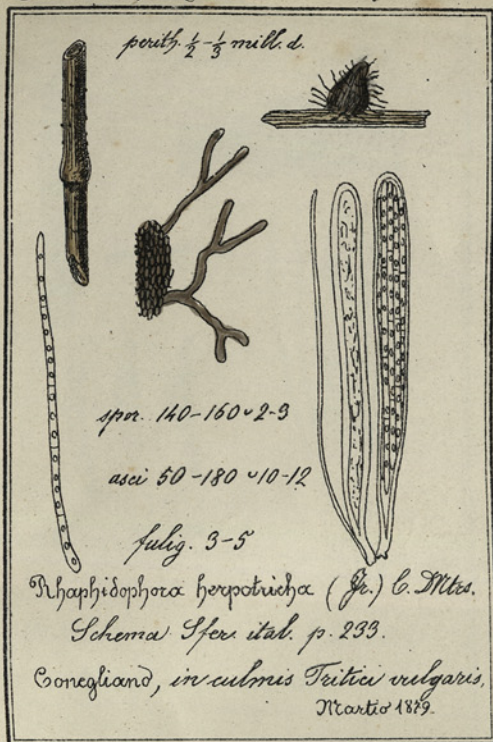 perith. ½-⅓ mill. d.
spor. 140-160 ᴗ 2-3
asci 50-180 ᴗ 10-12
fulig. 3-5
Rhaphidophora herpotricha (Fr.) C. Mtrs.
Schema Sfer. ital. p. 233.
Conegliano, in culmis Tritici vulgaris,
Martio 1879.